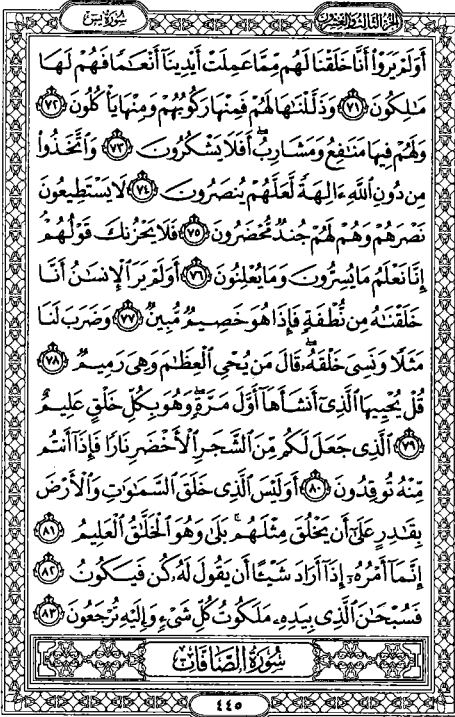 سُورَةُ يسٓ
الجزء الثالث والعشرون
أَوَلَمْ يَرَوْا۟ أَنَّا خَلَقْنَا لَهُم مِّمَّا عَمِلَتْ أَيْدِينَآ أَنْعَٰمًا فَهُمْ لَهَا
مَٰلِكُونَ ٧١ وَذَلَّلْنَٰهَا لَهُمْ فَمِنْهَا رَكُوبُهُمْ وَمِنْهَا يَأْكُلُونَ ٧٢
وَلَهُمْ فِيهَا مَنَٰفِعُ وَمَشَارِبُ ۖ أَفَلَا يَشْكُرُونَ ٧٣ وَٱتَّخَذُوا۟
مِن دُونِ ٱللَّهِ ءَالِهَةً لَّعَلَّهُمْ يُنصَرُونَ ٧٤ لَا يَسْتَطِيعُونَ
نَصْرَهُمْ وَهُمْ لَهُمْ جُندٌ مُّحْضَرُونَ ٧٥ فَلَا يَحْزُنكَ قَوْلُهُمْ ۘ
إِنَّا نَعْلَمُ مَا يُسِرُّونَ وَمَا يُعْلِنُونَ ٧٦ أَوَلَمْ يَرَ ٱلْإِنسَٰنُ أَنَّا
خَلَقْنَٰهُ مِن نُّطْفَةٍ فَإِذَا هُوَ خَصِيمٌ مُّبِينٌ ٧٧ وَضَرَبَ لَنَا
مَثَلًا وَنَسِىَ خَلْقَهُۥ ۖ قَالَ مَن يُحْىِ ٱلْعِظَٰمَ وَهِىَ رَمِيمٌ ٧٨
قُلْ يُحْيِيهَا ٱلَّذِىٓ أَنشَأَهَآ أَوَّلَ مَرَّةٍ ۖ وَهُوَ بِكُلِّ خَلْقٍ عَلِيمٌ
٧٩ ٱلَّذِى جَعَلَ لَكُم مِّنَ ٱلشَّجَرِ ٱلْأَخْضَرِ نَارًا فَإِذَآ أَنتُم
مِّنْهُ تُوقِدُونَ ٨٠ أَوَلَيْسَ ٱلَّذِى خَلَقَ ٱلسَّمَٰوَٰتِ وَٱلْأَرْضَ
بِقَٰدِرٍ عَلَىٰٓ أَن يَخْلُقَ مِثْلَهُم ۚ بَلَىٰ وَهُوَ ٱلْخَلَّٰقُ ٱلْعَلِيمُ ٨١
إِنَّمَآ أَمْرُهُۥٓ إِذَآ أَرَادَ شَيْـًٔا أَن يَقُولَ لَهُۥ كُن فَيَكُونُ ٨٢
فَسُبْحَٰنَ ٱلَّذِى بِيَدِهِۦ مَلَكُوتُ كُلِّ شَىْءٍ وَإِلَيْهِ تُرْجَعُونَ ٨٣
سُورَةُ الصَّافَّاتِ
٤٤٥